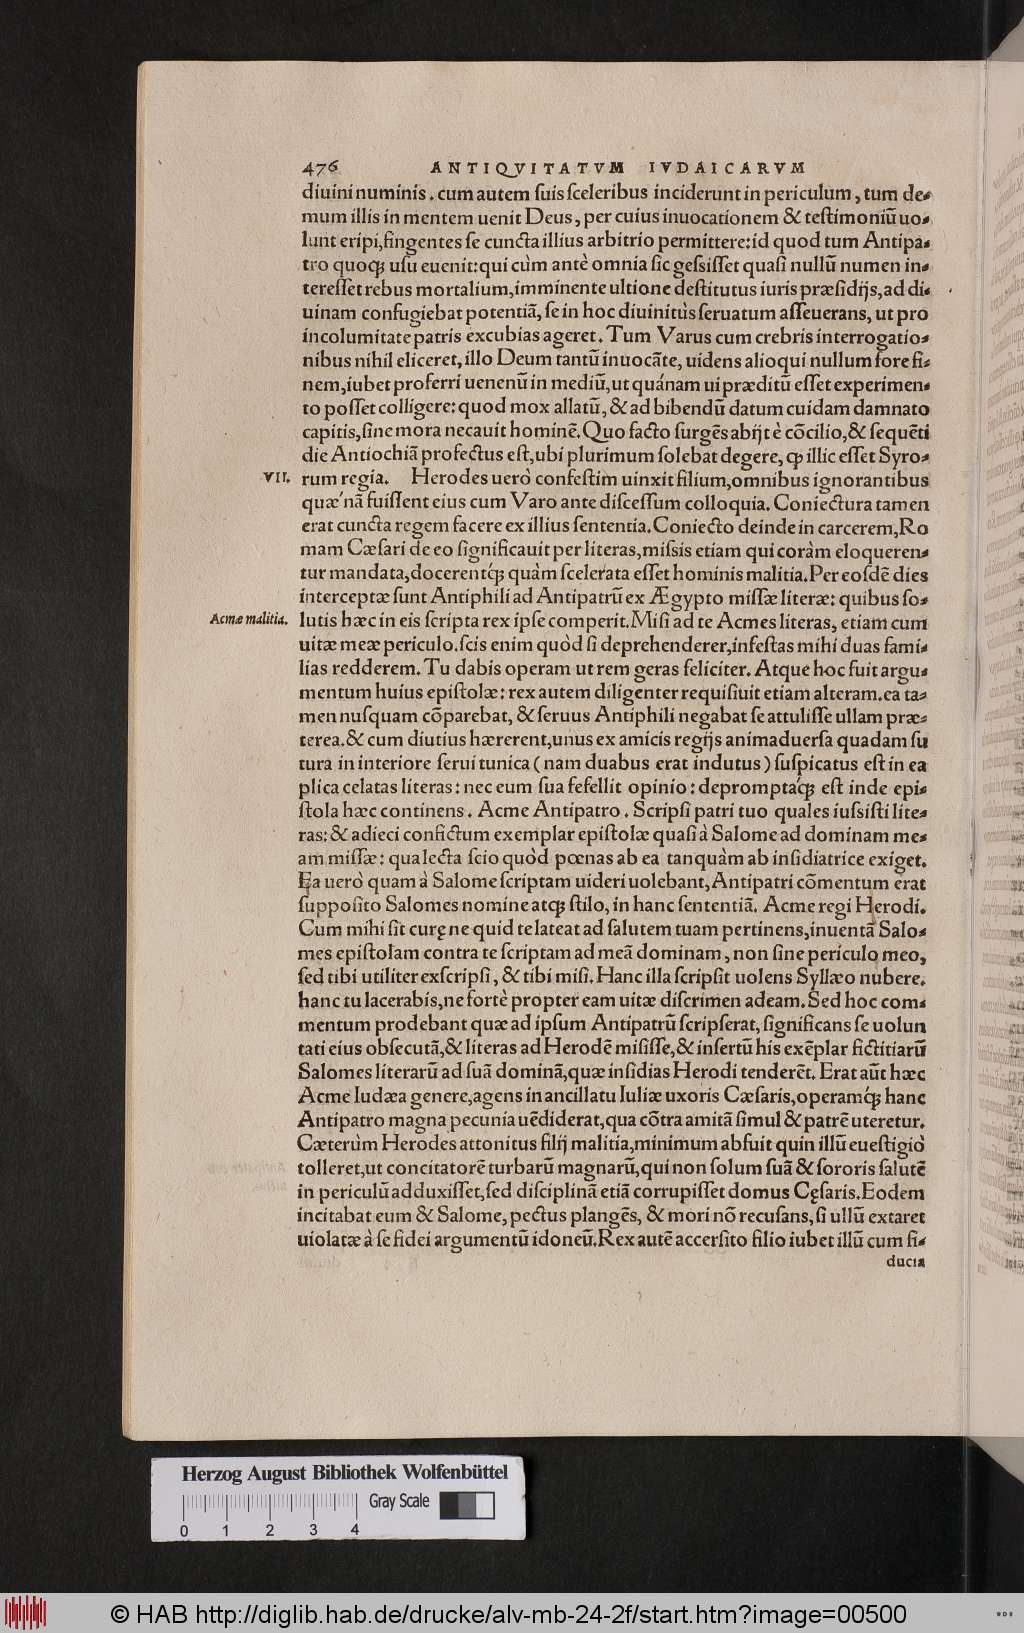 476 ANTIQVITATVM IVDAICARVM
diuini numinis. cum autem ſuis ſceleribus inciderunt in periculum, tum de-
mum illis in mentem uenit Deus, per cuius inuocationem & teſtimoniũ uo-
lunt eripi, fingentes ſe cuncta illius arbitrio permittere: id quod tum Antipa-
tro quoq; uſu euenit: qui cùm antè omnia ſic geſsiſſet quaſi nullũ numen in-
tereſſet rebus mortalium, imminente ultione deſtitutus iuris præſidijs, ad di-
uinam confugiebat potentiã, ſe in hoc diuinitùs ſeruatum aſſeuerans, ut pro
incolumitate patris excubias ageret. Tum Varus cum crebris interrogatio-
nibus nihil eliceret, illo Deum tantũ inuocãte, uidens alioqui nullum fore fi-
nem, iubet proferri uenenũ in mediũ, ut quánam ui præditũ eſſet experimen-
to poſſet colligere: quod mox allatũ, & ad bibendũ datum cuidam damnato
capitis, ſine mora necauit hominẽ. Quo facto ſurgẽs abijt è cõcilio, & ſequẽti
die Antiochiã profectus eſt, ubi plurimum ſolebat degere, ꝙ illic eſſet Syro-
VII. rum regia. Herodes uerò confeſtim uinxit filium, omnibus ignorantibus
quæ'nã fuiſſent eius cum Varo ante diſceſſum colloquia. Coniectura tamen
erat cuncta regem facere ex illius ſententia. Coniecto deinde in carcerem, Ro
mam Cæſari de eo ſignificauit per literas, miſsis etiam qui coràm eloqueren-
tur mandata, docerentq́; quàm ſcelerata eſſet hominis malitia. Per eoſdẽ dies
interceptæ ſunt Antiphili ad Antipatrũ ex Ægypto miſſæ literæ: quibus ſo-
Acmæ malitia. lutis hæc in eis ſcripta rex ipſe comperit. Miſi ad te Acmes literas, etiam cum
uitæ meæ periculo. ſcis enim quòd ſi deprehenderer, infeſtas mihi duas fami-
lias redderem. Tu dabis operam ut rem geras feliciter. Atque hoc fuit argu-
mentum huius epiſtolæ: rex autem diligenter requiſiuit etiam alteram. ea ta-
men nuſquam cõparebat, & ſeruus Antiphili negabat ſe attuliſſe ullam præ-
terea. & cum diutius hærerent, unus ex amicis regijs animaduerſa quadam ſu
tura in interiore ſerui tunica (nam duabus erat indutus) ſuſpicatus eſt in ea
plica celatas literas: nec eum ſua fefellit opinio: depromptáq; eſt inde epi-
ſtola hæc continens. Acme Antipatro. Scripſi patri tuo quales iuſsiſti lite-
ras: & adieci confictum exemplar epiſtolæ quaſi à Salome ad dominam me-
am miſſæ: qua lecta ſcio quòd pœnas ab ea tanquàm ab inſidiatrice exiget.
Ea uerò quam à Salome ſcriptam uideri uolebant, Antipatri cõmentum erat
ſuppoſito Salomes nomine atq; ſtilo, in hanc ſententiã. Acme regi Herodi.
Cum mihi ſit curę ne quid te lateat ad ſalutem tuam pertinens, inuentã Salo-
mes epiſtolam contra te ſcriptam ad meã dominam, non ſine periculo meo,
ſed tibi utiliter exſcripſi, & tibi miſi. Hanc illa ſcripſit uolens Syllæo nubere.
hanc tu lacerabis, ne fortè propter eam uitæ diſcrimen adeam. Sed hoc com-
mentum prodebant quæ ad ipſum Antipatrũ ſcripſerat, ſignificans ſe uolun
tati eius obſecutã, & literas ad Herodẽ miſiſſe, & inſertũ his exẽplar fictitiarũ
Salomes literarũ ad ſuã dominã, quæ inſidias Herodi tenderẽt. Erat aũt hæc
Acme Iudæa genere, agens in ancillatu Iuliæ uxoris Cæſaris, operamq́; hanc
Antipatro magna pecunia uẽdiderat, qua cõtra amitã ſimul & patrẽ uteretur.
Cæterùm Herodes attonitus filij malitia, minimum abfuit quin illũ eueſtigiò
tolleret, ut concitatorẽ turbarũ magnarũ, qui non ſolum ſuã & ſororis ſalutẽ
in periculũ adduxiſſet, ſed diſciplinã etiã corrupiſſet domus Cęſaris. Eodem
incitabat eum & Salome, pectus plangẽs, & mori nõ recuſans, ſi ullũ extaret
uiolatæ à ſe fidei argumentũ idoneũ. Rex autẽ accerſito filio iubet illũ cum fi-
ducia
Herzog August Bibliothek Wolfenbüttel
Gray Scale
0 1 2 3 4
© HAB http://diglib.hab.de/drucke/alv-mb-24-2f/start.htm?image=00500